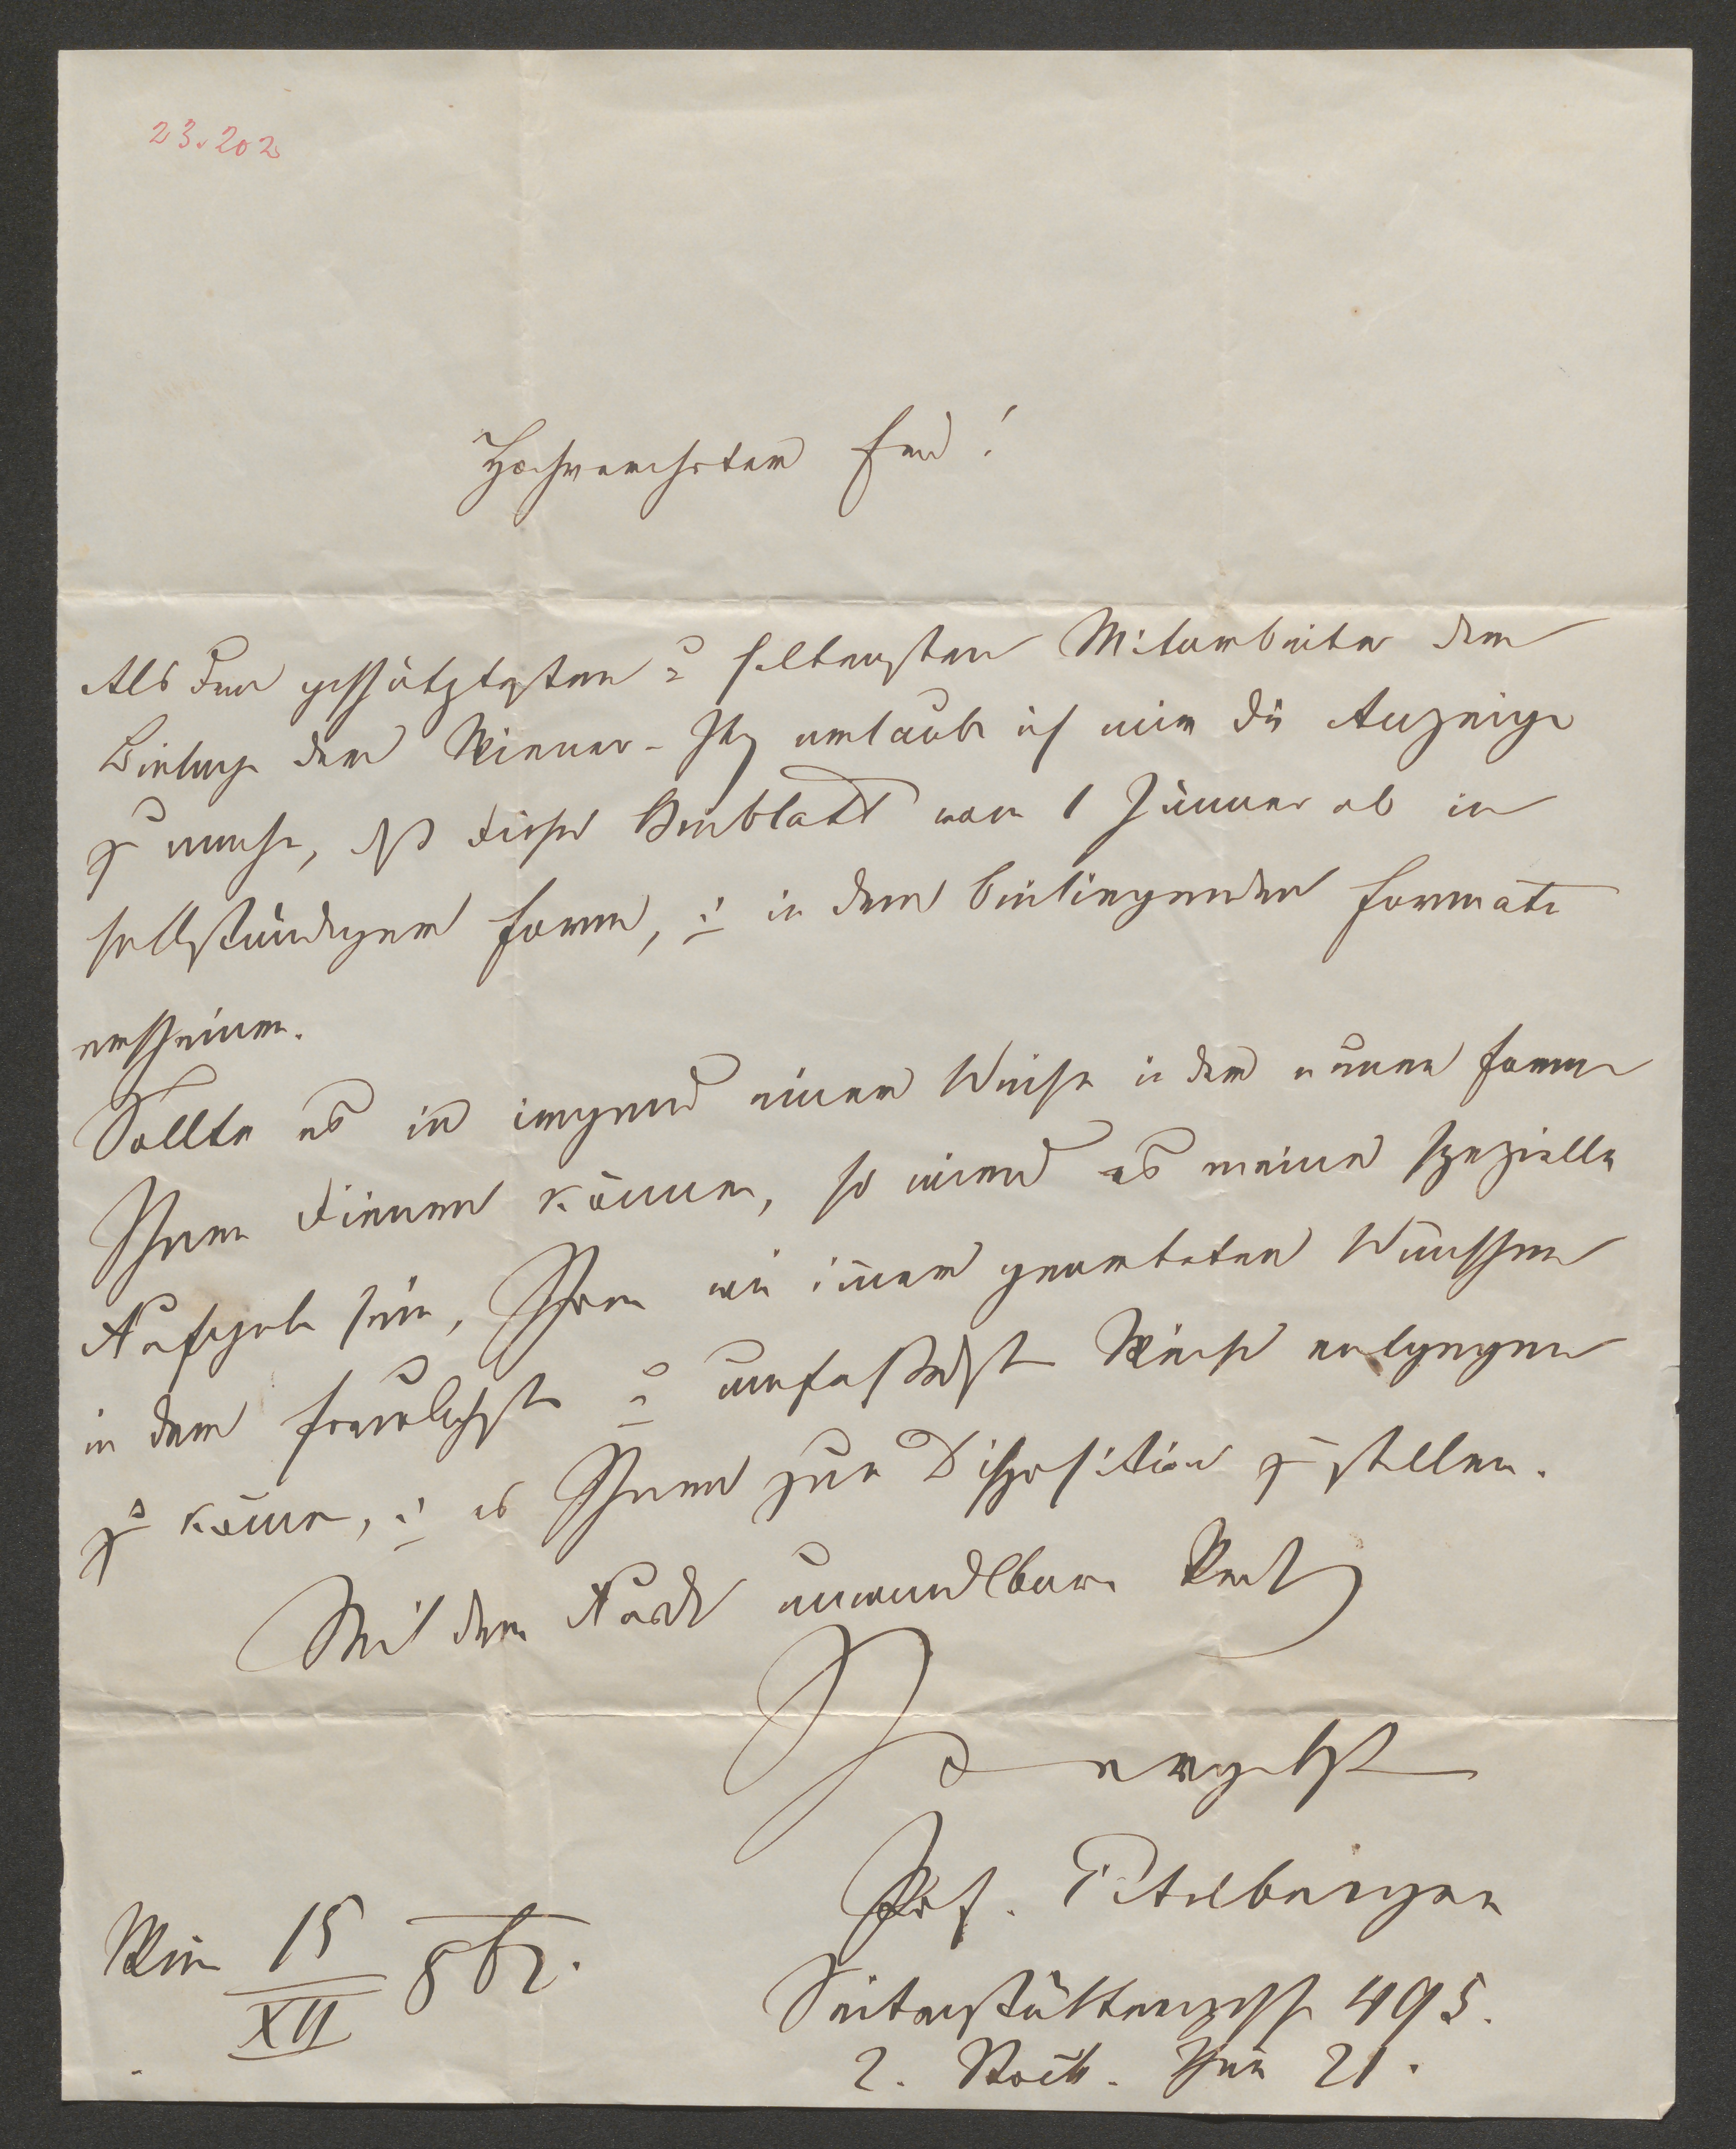 23.202
Hochverehrter Herr!
Als dem geschätztesten u seltensten Mitarbeiter der
Beilage der Wiener-Ztg erlaube ich mir die Anzeige
zu machen, daß dieses Beiblatt vom 1 Jänner ab in
selbständiger Form, u in dem beiliegenden Formate
erscheinen.
Sollte es in irgend einer Weise in der neuen Form
Ihnen dienen können, so wird es meine spezielle
Aufgabe sein, Ihren wie immer gearteten Wünschen
in der freundlichst u umfaßendst Weise entgegen
zu kommen, u es Ihnen zur Disposition zu stellen.
Mit dem Ausdr unwandelbarer
ergebenst
Prof. Pitelberger
Seitenstättengasse 495.
2. Stock. Thür 21.
Wien 15/XII 862.